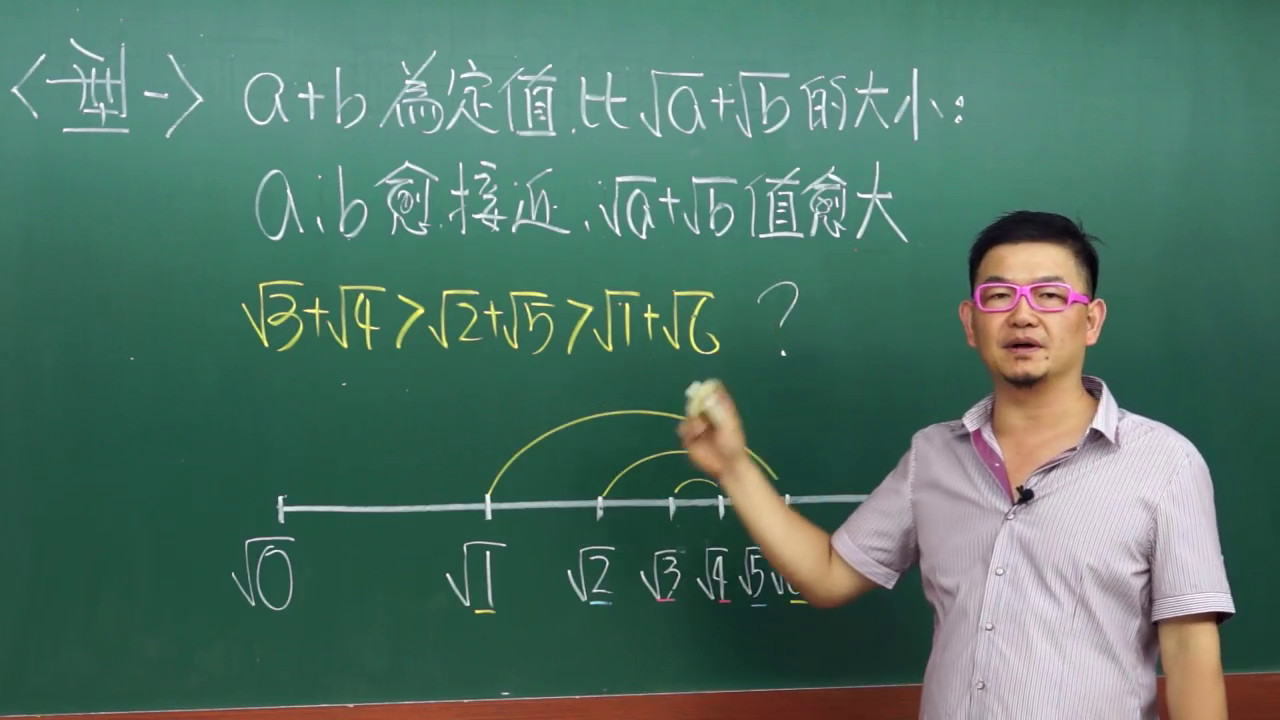 <型一> a+b為定值,比√a+√b的大小:
a、b愈接近,√a+√b值愈大
√3+√4>√2+√5>√1+√6 ?
√0 √1 √2 √3 √4 √5